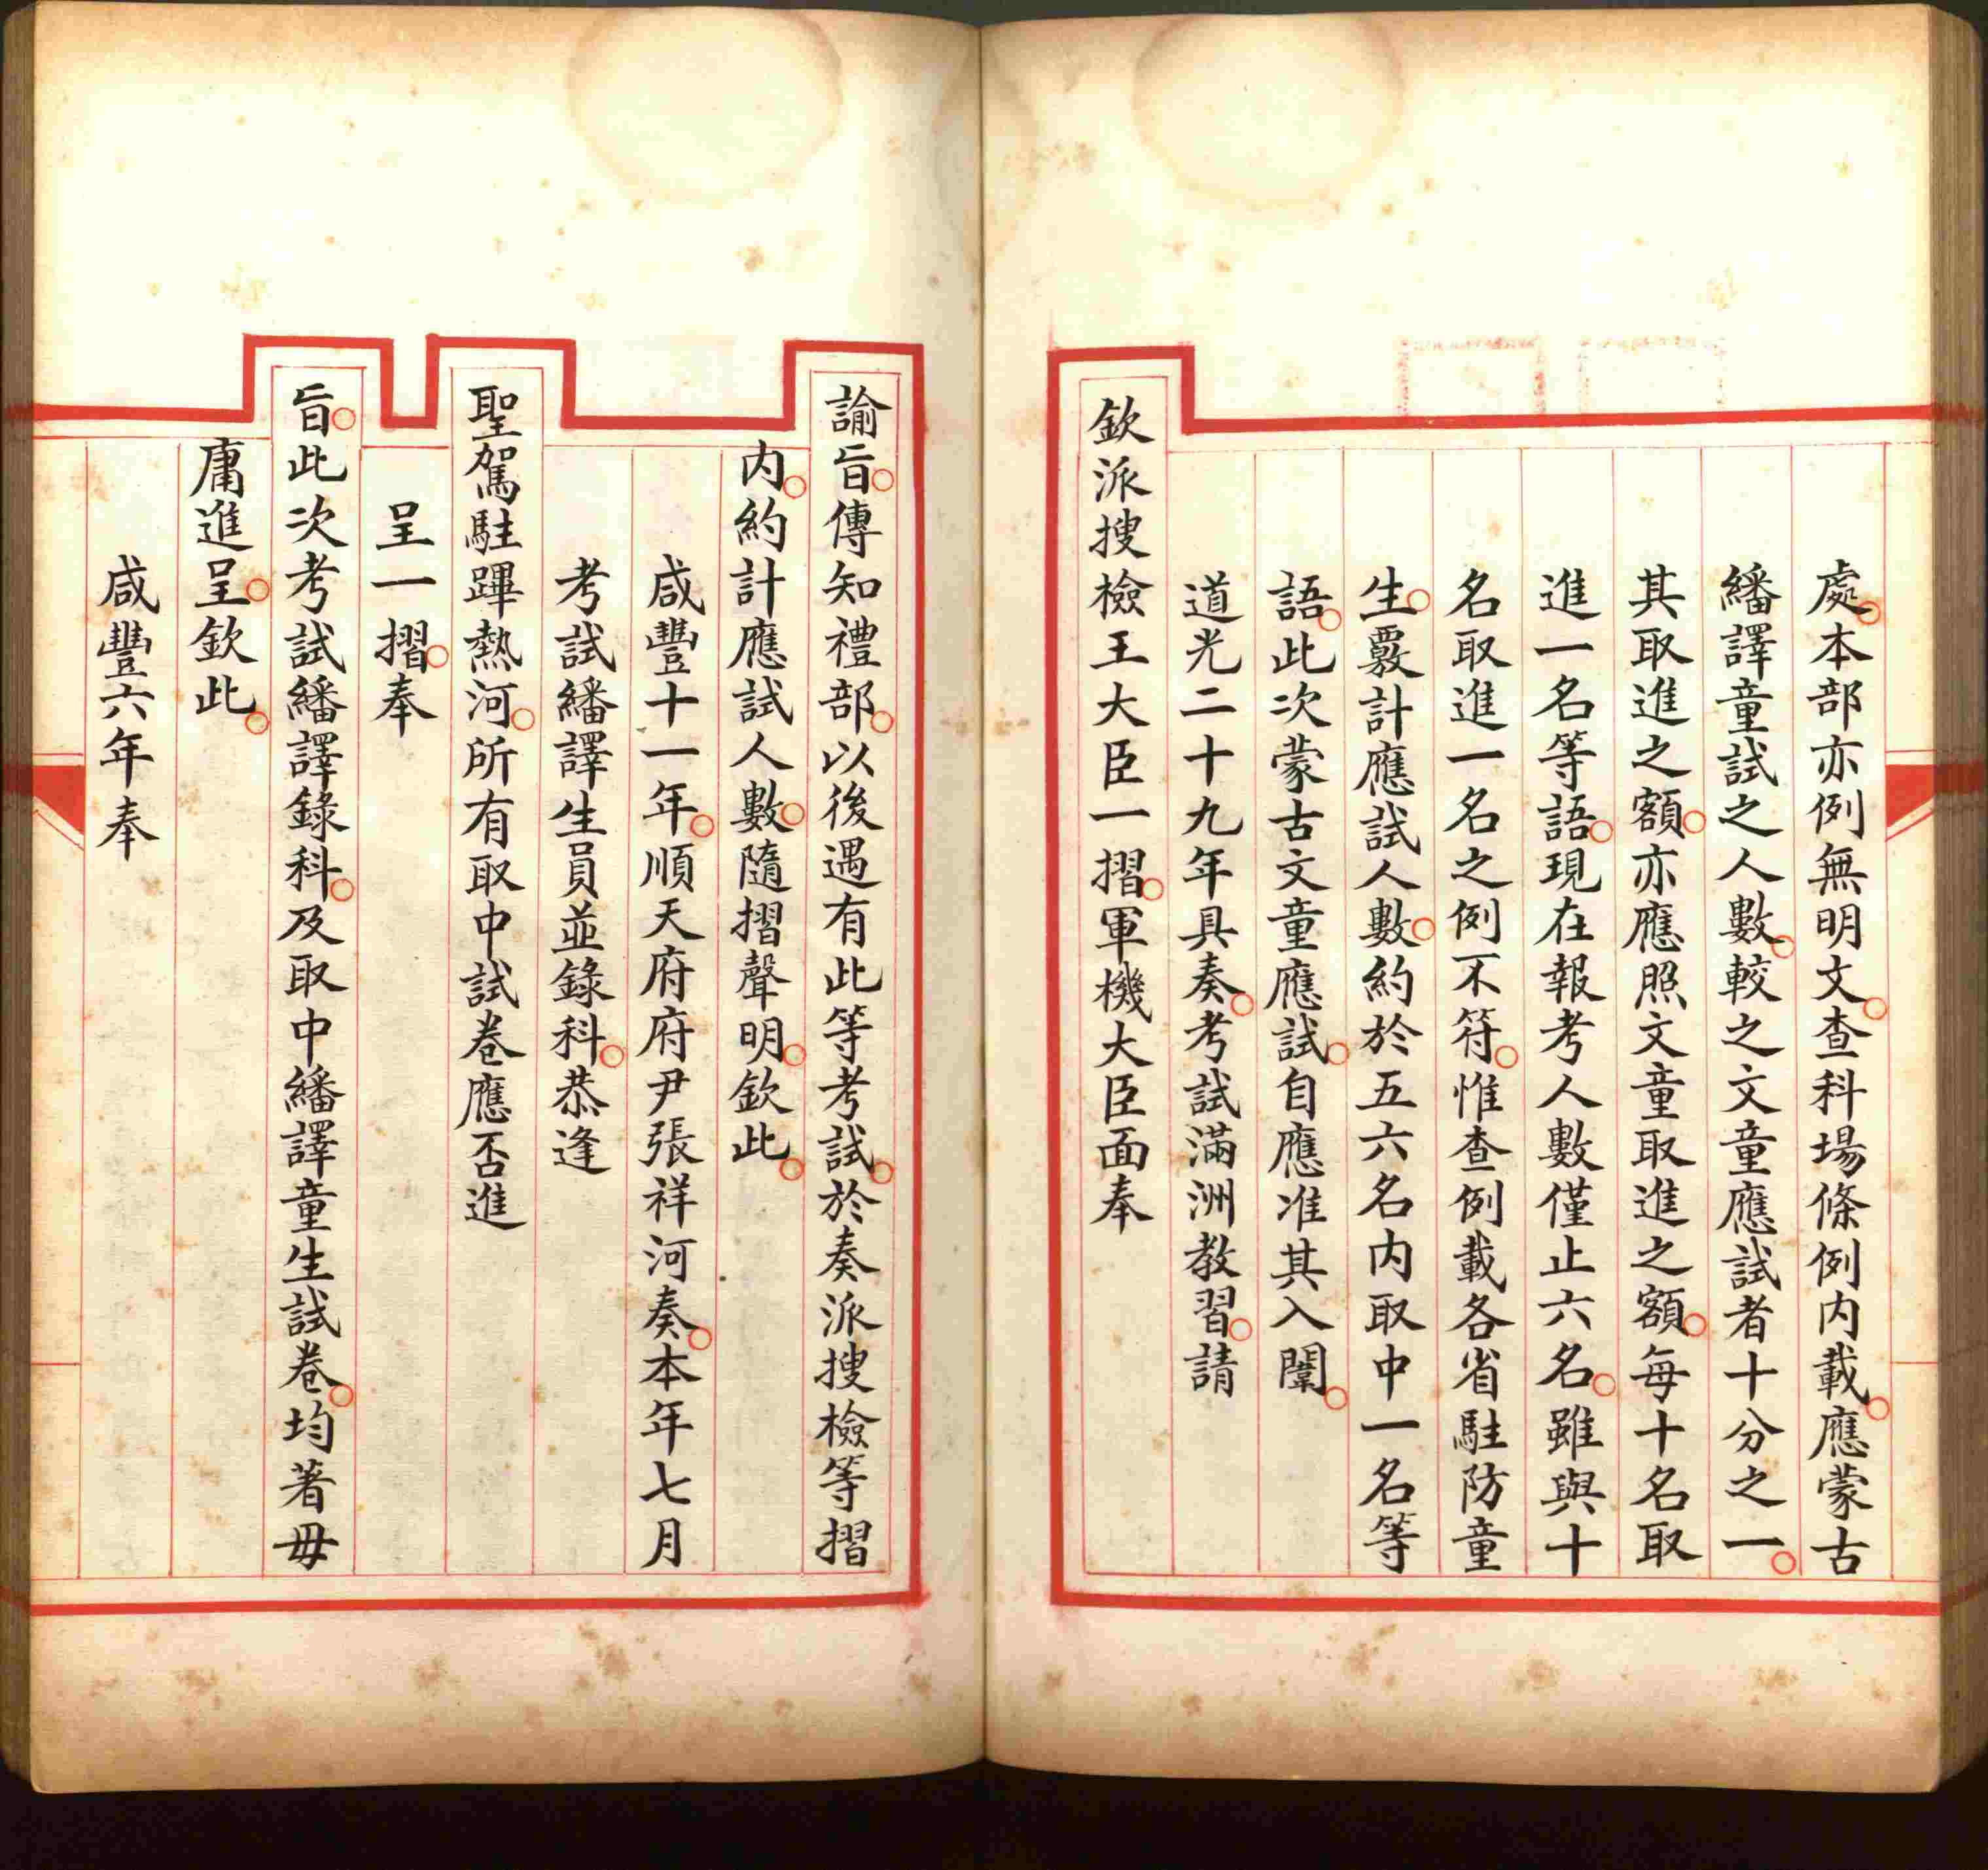 處本部亦例無明文查科場條例内載應蒙古
繙譯童試之人數較之文童應試者十分之一
其取進之額亦應照文童取進之額每十名取
進一名等語現在報考人數僅止六名雖與十
名取進一名之例不符惟查例載各省駐防童
生覈計應試人數約於五六名内取中一名等
語此次蒙古文童應試自應准其入闈
道光二十九年具奏考試滿洲教習請
欽派搜檢王大臣一摺軍機大臣面奉
諭旨傳知禮部以後遇有此等考試於奏派搜檢等摺
内約計應試人數隨摺聲明欽此
咸豐十一年順天府府尹張祥河奏本年七月
考試繙譯生員並錄科恭逢
聖駕駐蹕熱河所有取中試卷應否進
呈一摺奉
旨此次考試繙譯錄科及取中繙譯童生試卷均著毋
庸進呈欽此
咸豐六年奉